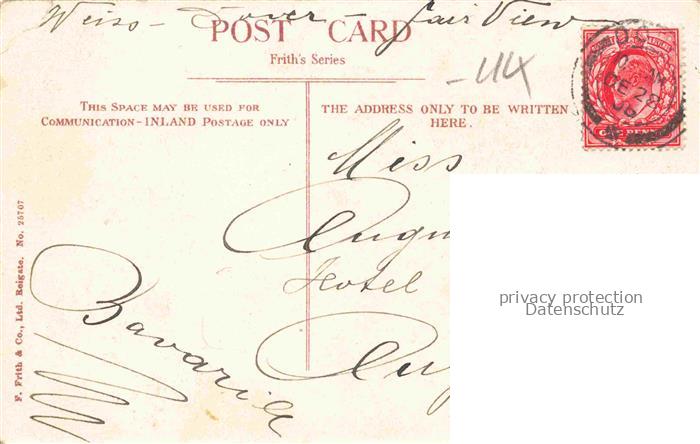 Weiss - Dover - Fair View
POST CARD
Frith's Series
THIS SPACE MAY BE USED FOR
COMMUNICATION-INLAND POSTAGE ONLY
THE ADDRESS ONLY TO BE WRITTEN
HERE.
Miss
Augu
Hotel
Aug
Bavaria
F. Frith & Co., Ltd. Reigate. No. 25707
ONE PENNY
DE 28
privacy protection
Datenschutz